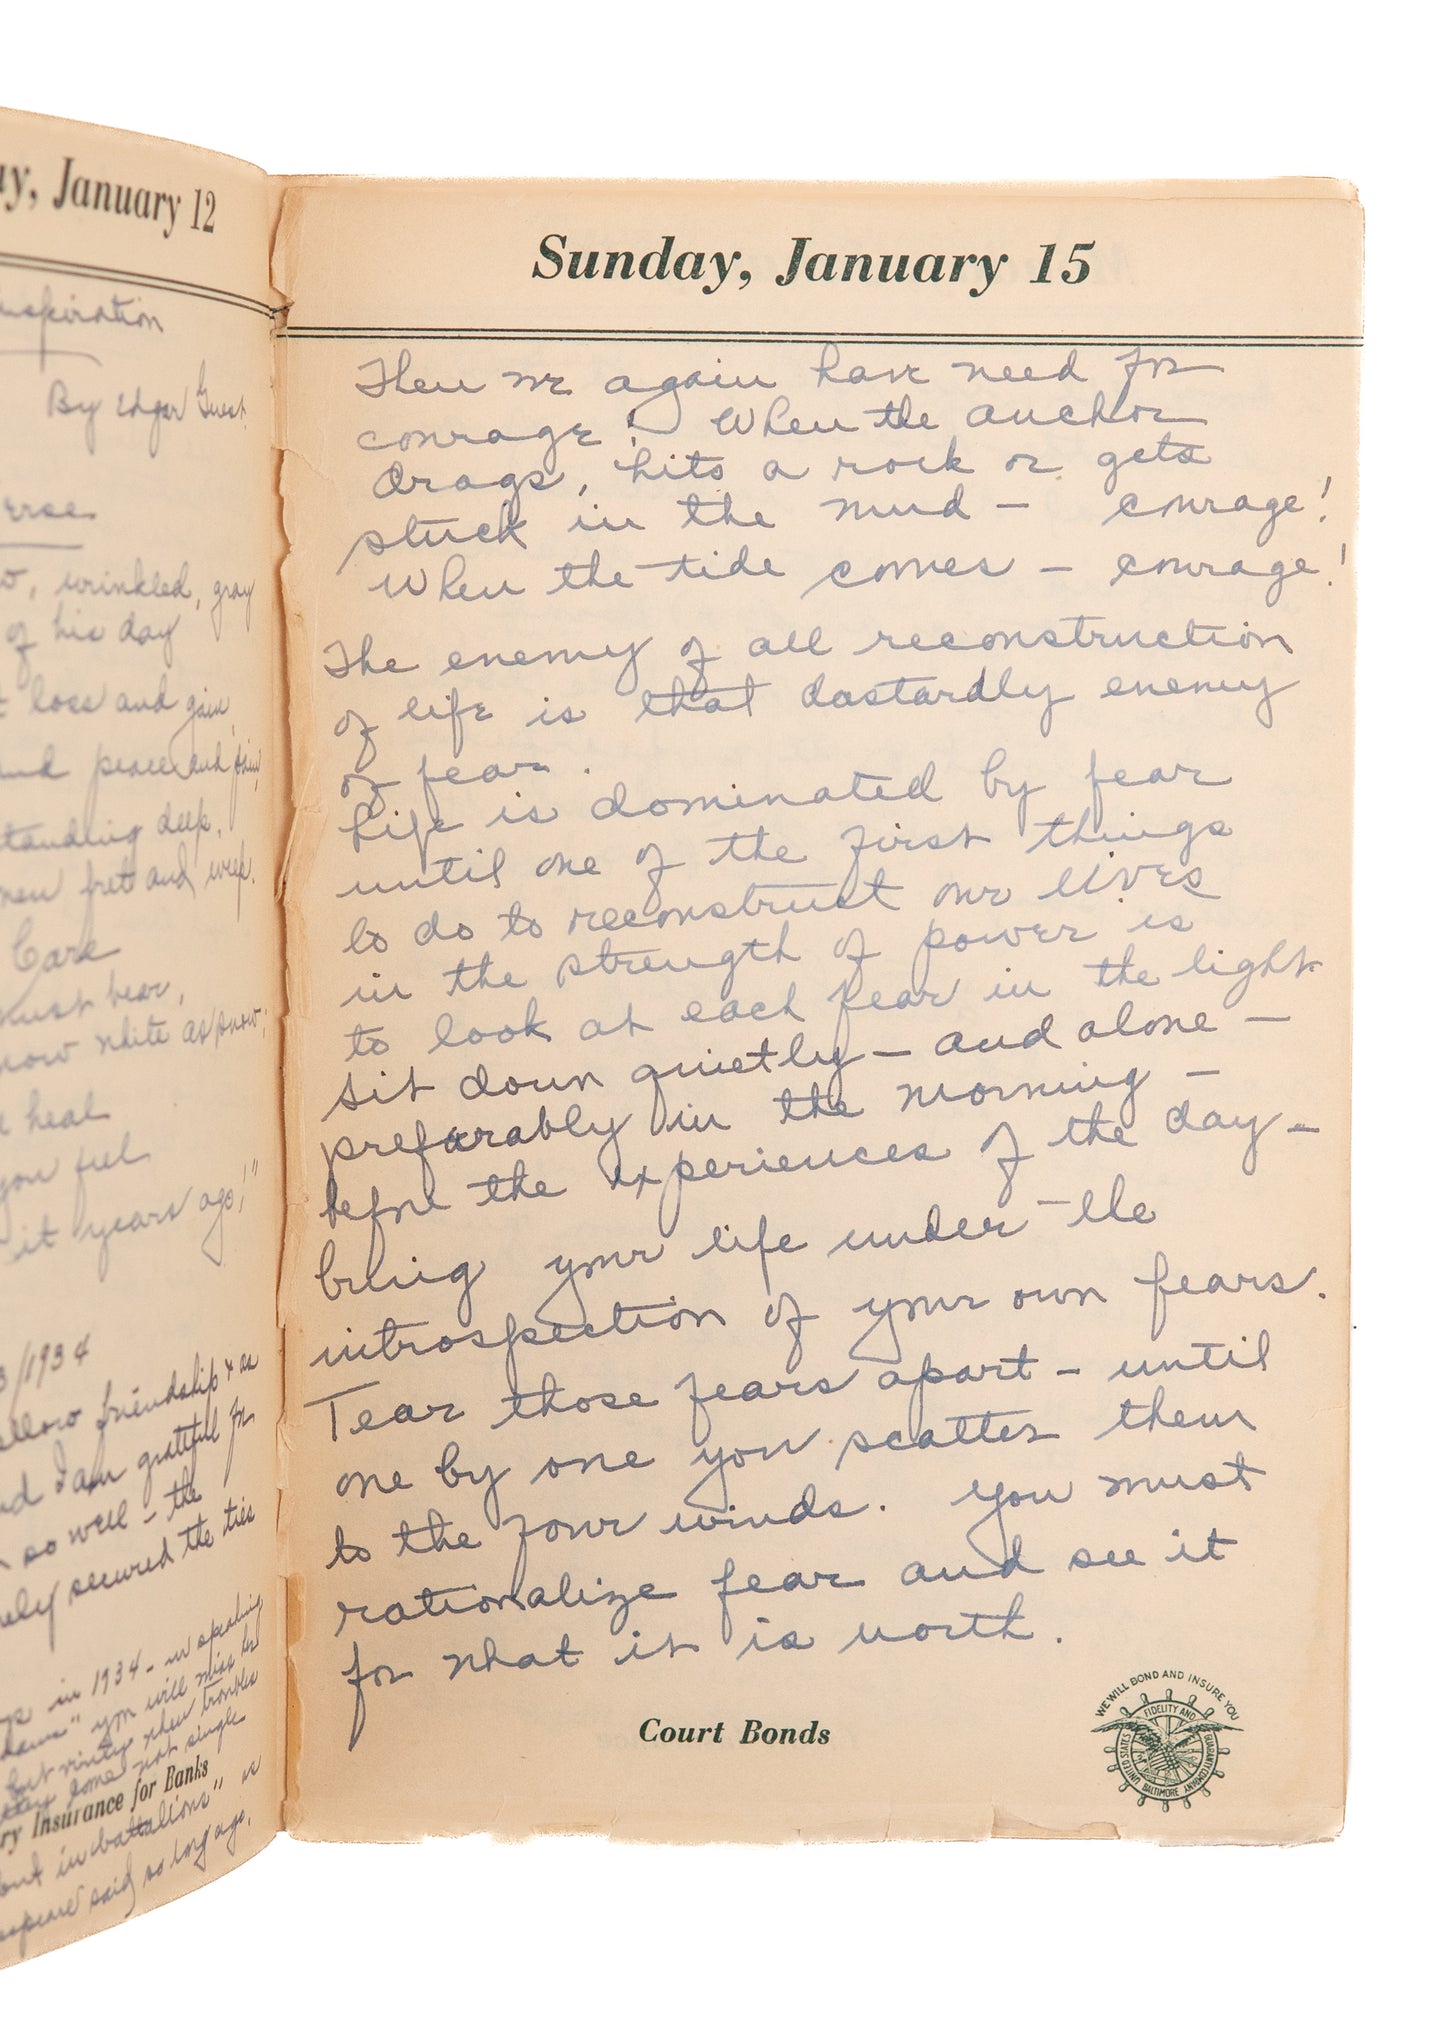 ay, January 12
nspiration
By Edgar Guest.
erse
, wrinkled, gray
of his day
t loss and gain,
and peace and pain,
standing deep,
men fret and weep.
Care
must bear,
now white as snow;
heal
you feel
it years ago!"
3/1934
friendship & as
nd I am grateful for
so well - the
ely secured the ties
in 1934 - in speaking
you will miss her
when troubles
come not single
ry Insurance for Banks
but in battalions" as
speare said so long ago.
Sunday, January 15
Then we again have need for
courage! When the anchor
drags, hits a rock or gets
stuck in the mud - courage!
When the tide comes - courage!
The enemy of all reconstruction
of life is that dastardly enemy
of fear.
Life is dominated by fear
until one of the first things
to do to reconstruct our lives
in the strength of power is
to look at each fear in the light
sit down quietly - and alone -
preferably in the morning -
before the experiences of the day -
bring your life under the
introspection of your own fears.
Tear those fears apart - until
one by one you scatter them
to the four winds. You must
rationalize fear and see it
for what it is worth.
Court Bonds
WE WILL BOND AND INSURE YOU
UNITED STATES FIDELITY AND GUARANTY COMPANY
BALTIMORE